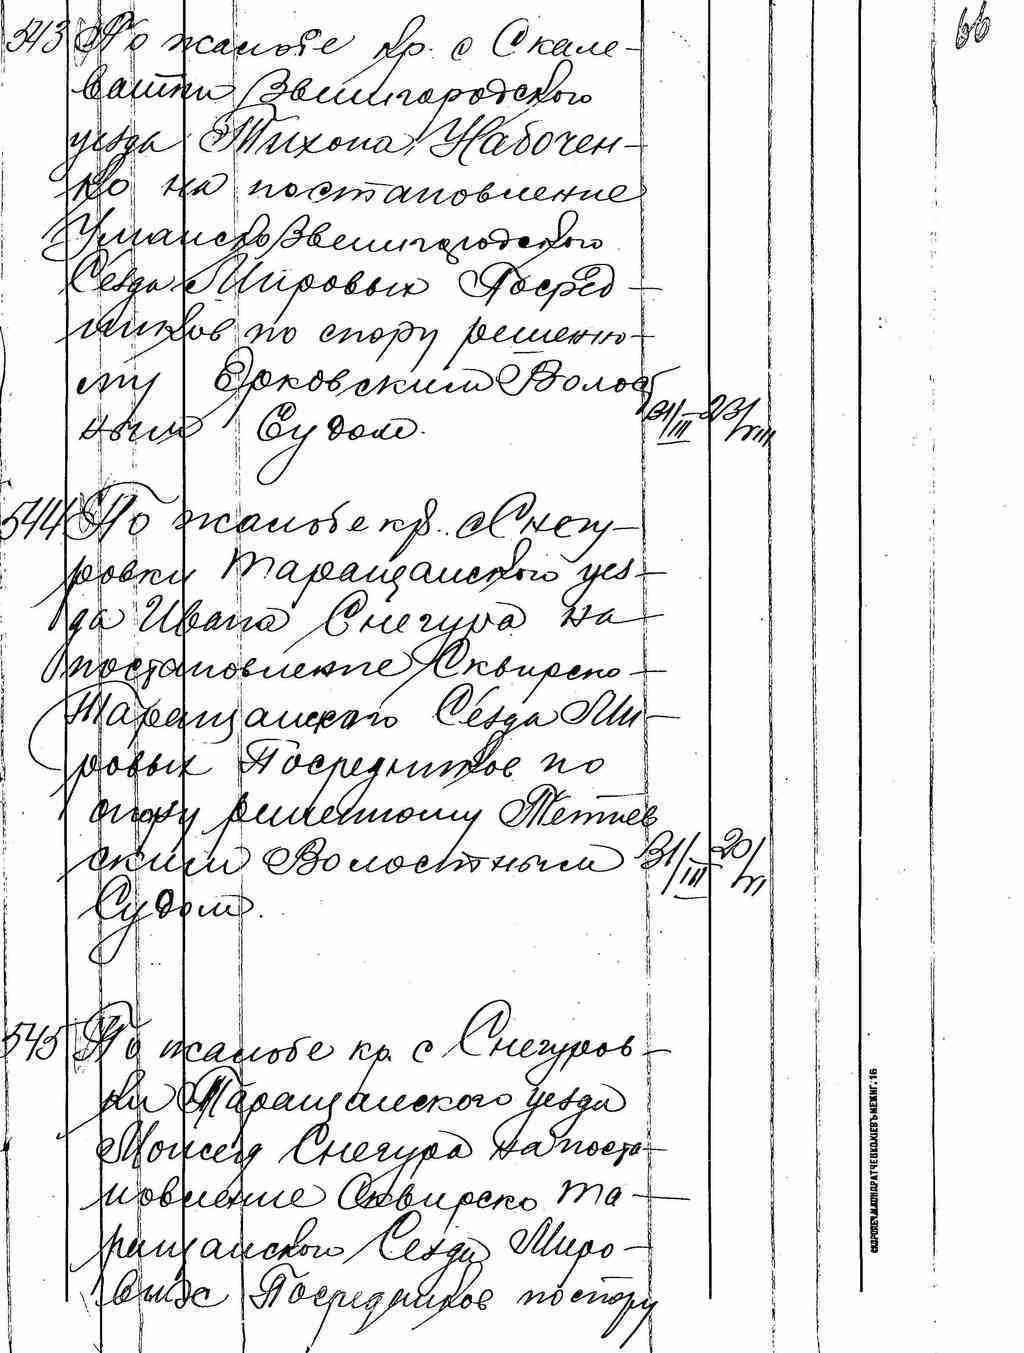 66
543 По жалобе кр. с Скале-
ватки Звенигородского
уезда Тихона Набочен-
ко на постановление
Уманско Звенигородского
Сезда Мировых Посред-
ников по спору решенно-
му Ерковским Волост
ным Судом. 31/III 23/VIII
544 По жалобе кр. с Снегу-
ровки Таращанского уез-
да Ивана Снегура на
постановление Сквирско-
Таращанского Сезда Ми-
ровых Посредников по
спору решенному Тетиев
ским Волостным 31/III 20/VI
Судом.
545 По жалобе кр. с Снегуров-
ки Таращанского уезда
Моисея Снегура на поста-
новление Сквирско Та-
ращанского Сезда Миро-
вых Посредников по спору